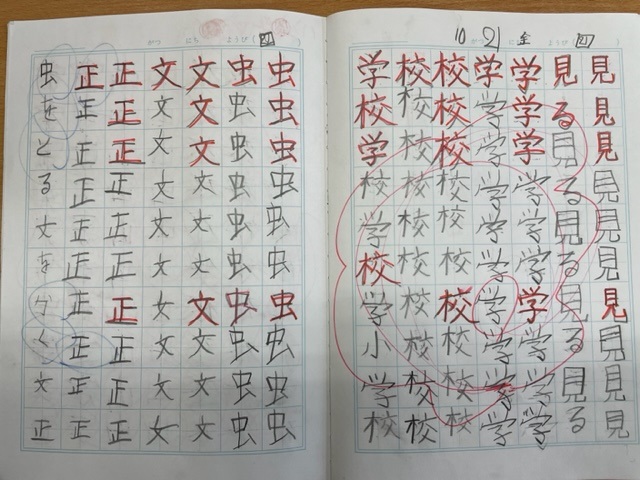 10 がつ 21 にち 金 ようび (四)
見見見見見見見見見見
見る見る見る見る見る
学学学学学学学学学学
学学学学学学学学学学
校校校校校校校校校校
校校校校校校校校校校
学校学校学校学小学校
がつ にち ようび (四)
虫虫虫虫虫虫虫虫虫虫
虫虫虫虫虫虫虫虫虫虫
文文文文文文文文文文
文文文文文文文文文文
正正正正正正正正正正
正正正正正正正正正正
虫をとる文をかく文正